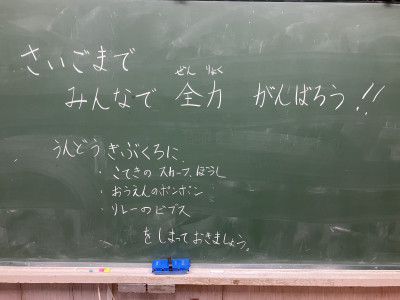 さいごまで
ぜん りょく
みんなで 全力 がんばろう!!
うんどうぎぶくろに
・こてきの スカーフ、ぼうし
・おうえんのポンポン
・リレーのビブス
をしまっておきましょう。